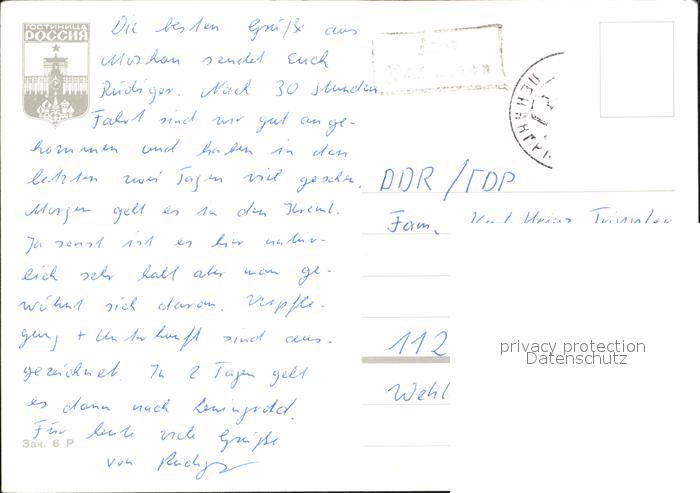 ГОСТИНИЦА
РОССИЯ
Die besten Grüße aus
Moskau sendet Euch
Rüdiger. Nach 30 stunden
Fahrt sind wir gut ange-
kommen und haben in den
letzten zwei Tagen viel gesehen.
Morgen geht es in den Kreml.
Ja sonst ist es hier natür-
lich sehr kalt aber man ge-
wöhnt sich daran. Verpfle-
gung + Unterkunft sind aus-
gezeichnet. In 2 Tagen geht
es dann nach Leningrad.
Für heute viele Grüße
von Rüdiger
Зак. 6 Р
ЛЕНИНГРАД
DDR / ГДР
Fam.
112
Wehl
privacy protection
Datenschutz